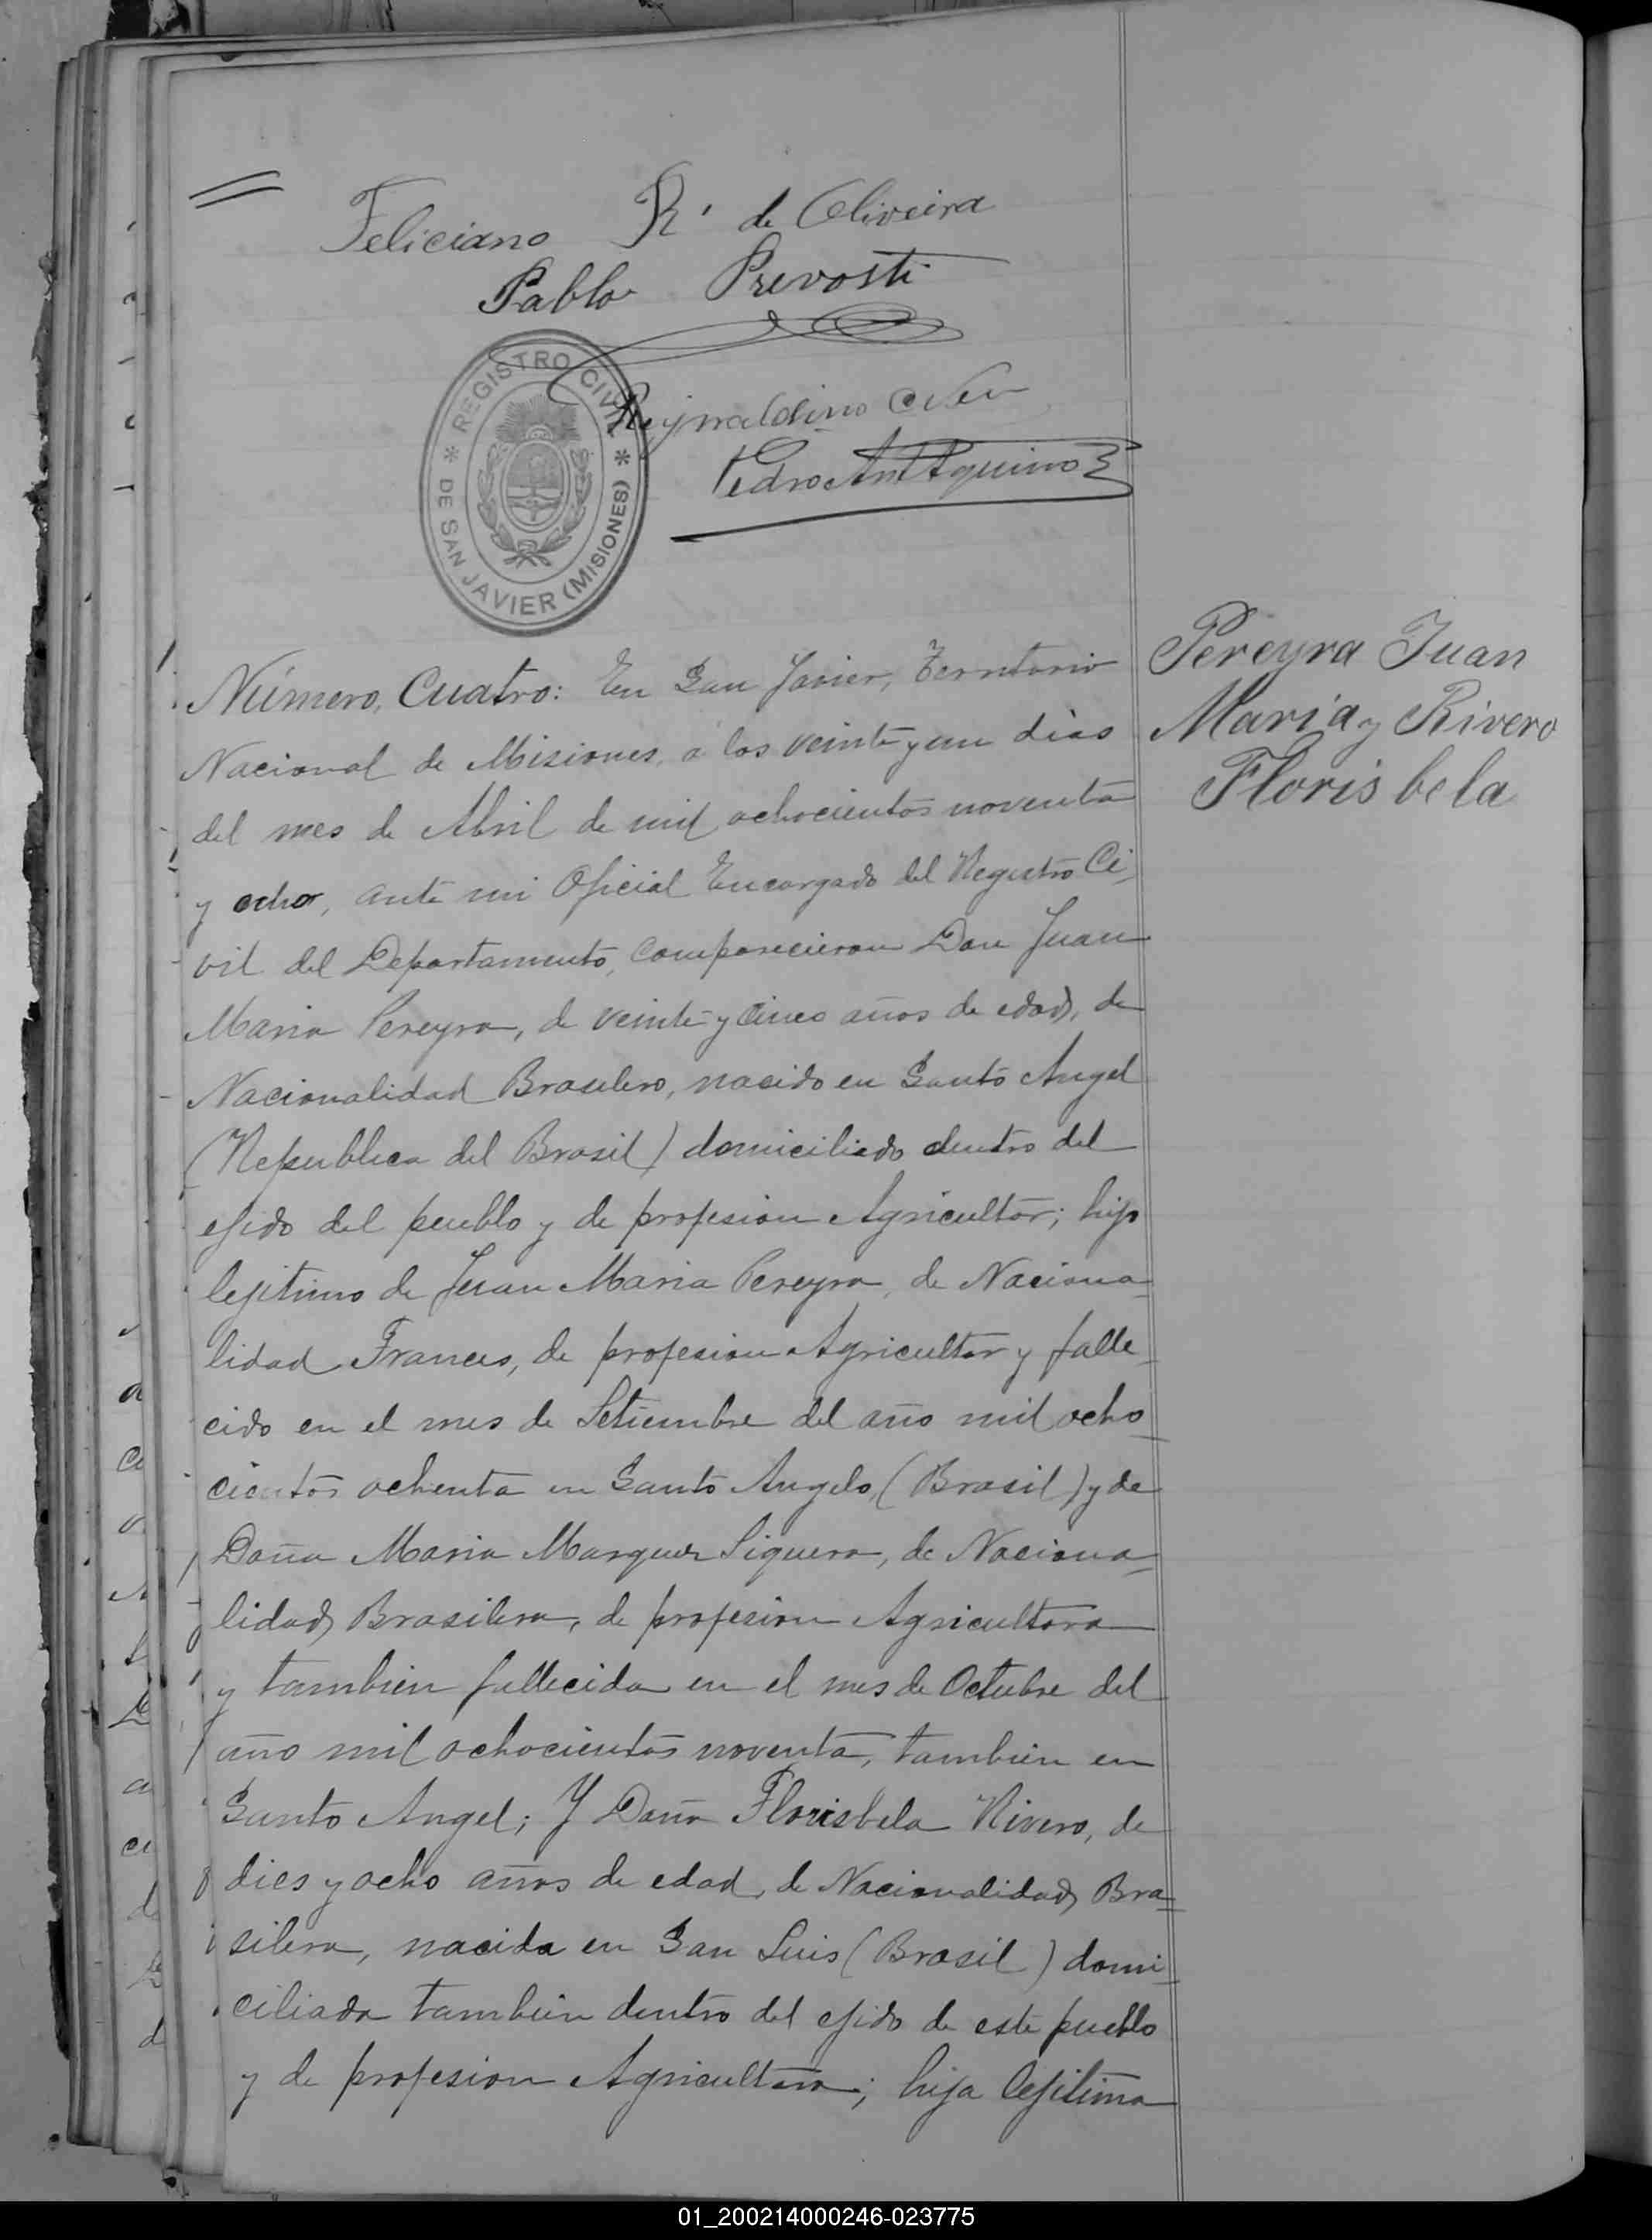 Feliciano R. de Oliveira
Pablo Prevosti
REGISTRO CIVIL
* DE SAN JAVIER (MISIONES) *
Reynaldino
Pedro Ant Aquino
Pereyra Juan
Maria y Rivero
Florisbela
Número, Cuatro: En San Javier, Territorio
Nacional de Misiones, á los veinte y un dias
del mes de Abril de mil ochocientos noventa
y ocho, ante mi Oficial Encargado del Registro Ci-
vil del Departamento, comparecieron Don Juan
Maria Pereyra, de veinte y cinco años de edad, de
Nacionalidad Brasilero, nacido en Santo Angel
(Republica del Brasil) domiciliado dentro del
ejido del pueblo y de profesion Agricultor; hijo
lejitimo de Juan Maria Pereyra, de Naciona-
lidad Frances, de profesion Agricultor y falle-
cido en el mes de Setiembre del año mil ocho-
cientos ochenta en Santo Angelo, (Brasil) y de
Doña Maria Marques Siquera, de Naciona-
lidad Brasilera, de profesion Agricultora
y tambien fallecida en el mes de Octubre del
año mil ochocientos noventa, tambien en
Santo Angel; Y Doña Florisbela Rivero, de
dies y ocho años de edad, de Nacionalidad Bra-
silera, nacida en San Luis (Brasil) domi-
ciliada tambien dentro del ejido de este pueblo
y de profesion Agricultora; hija lejitima
01_200214000246-023775